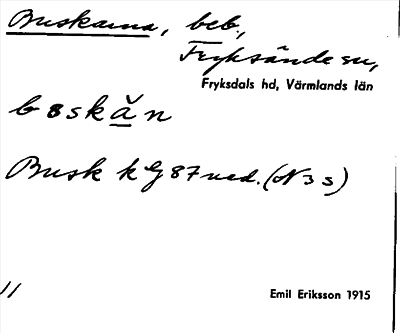 Buskarna, beb.,
Fryksände sn,
Fryksdals hd, Värmlands län
b8skă̱n
Busk k G 87 ned. (N 3 s)
11
Emil Eriksson 1915